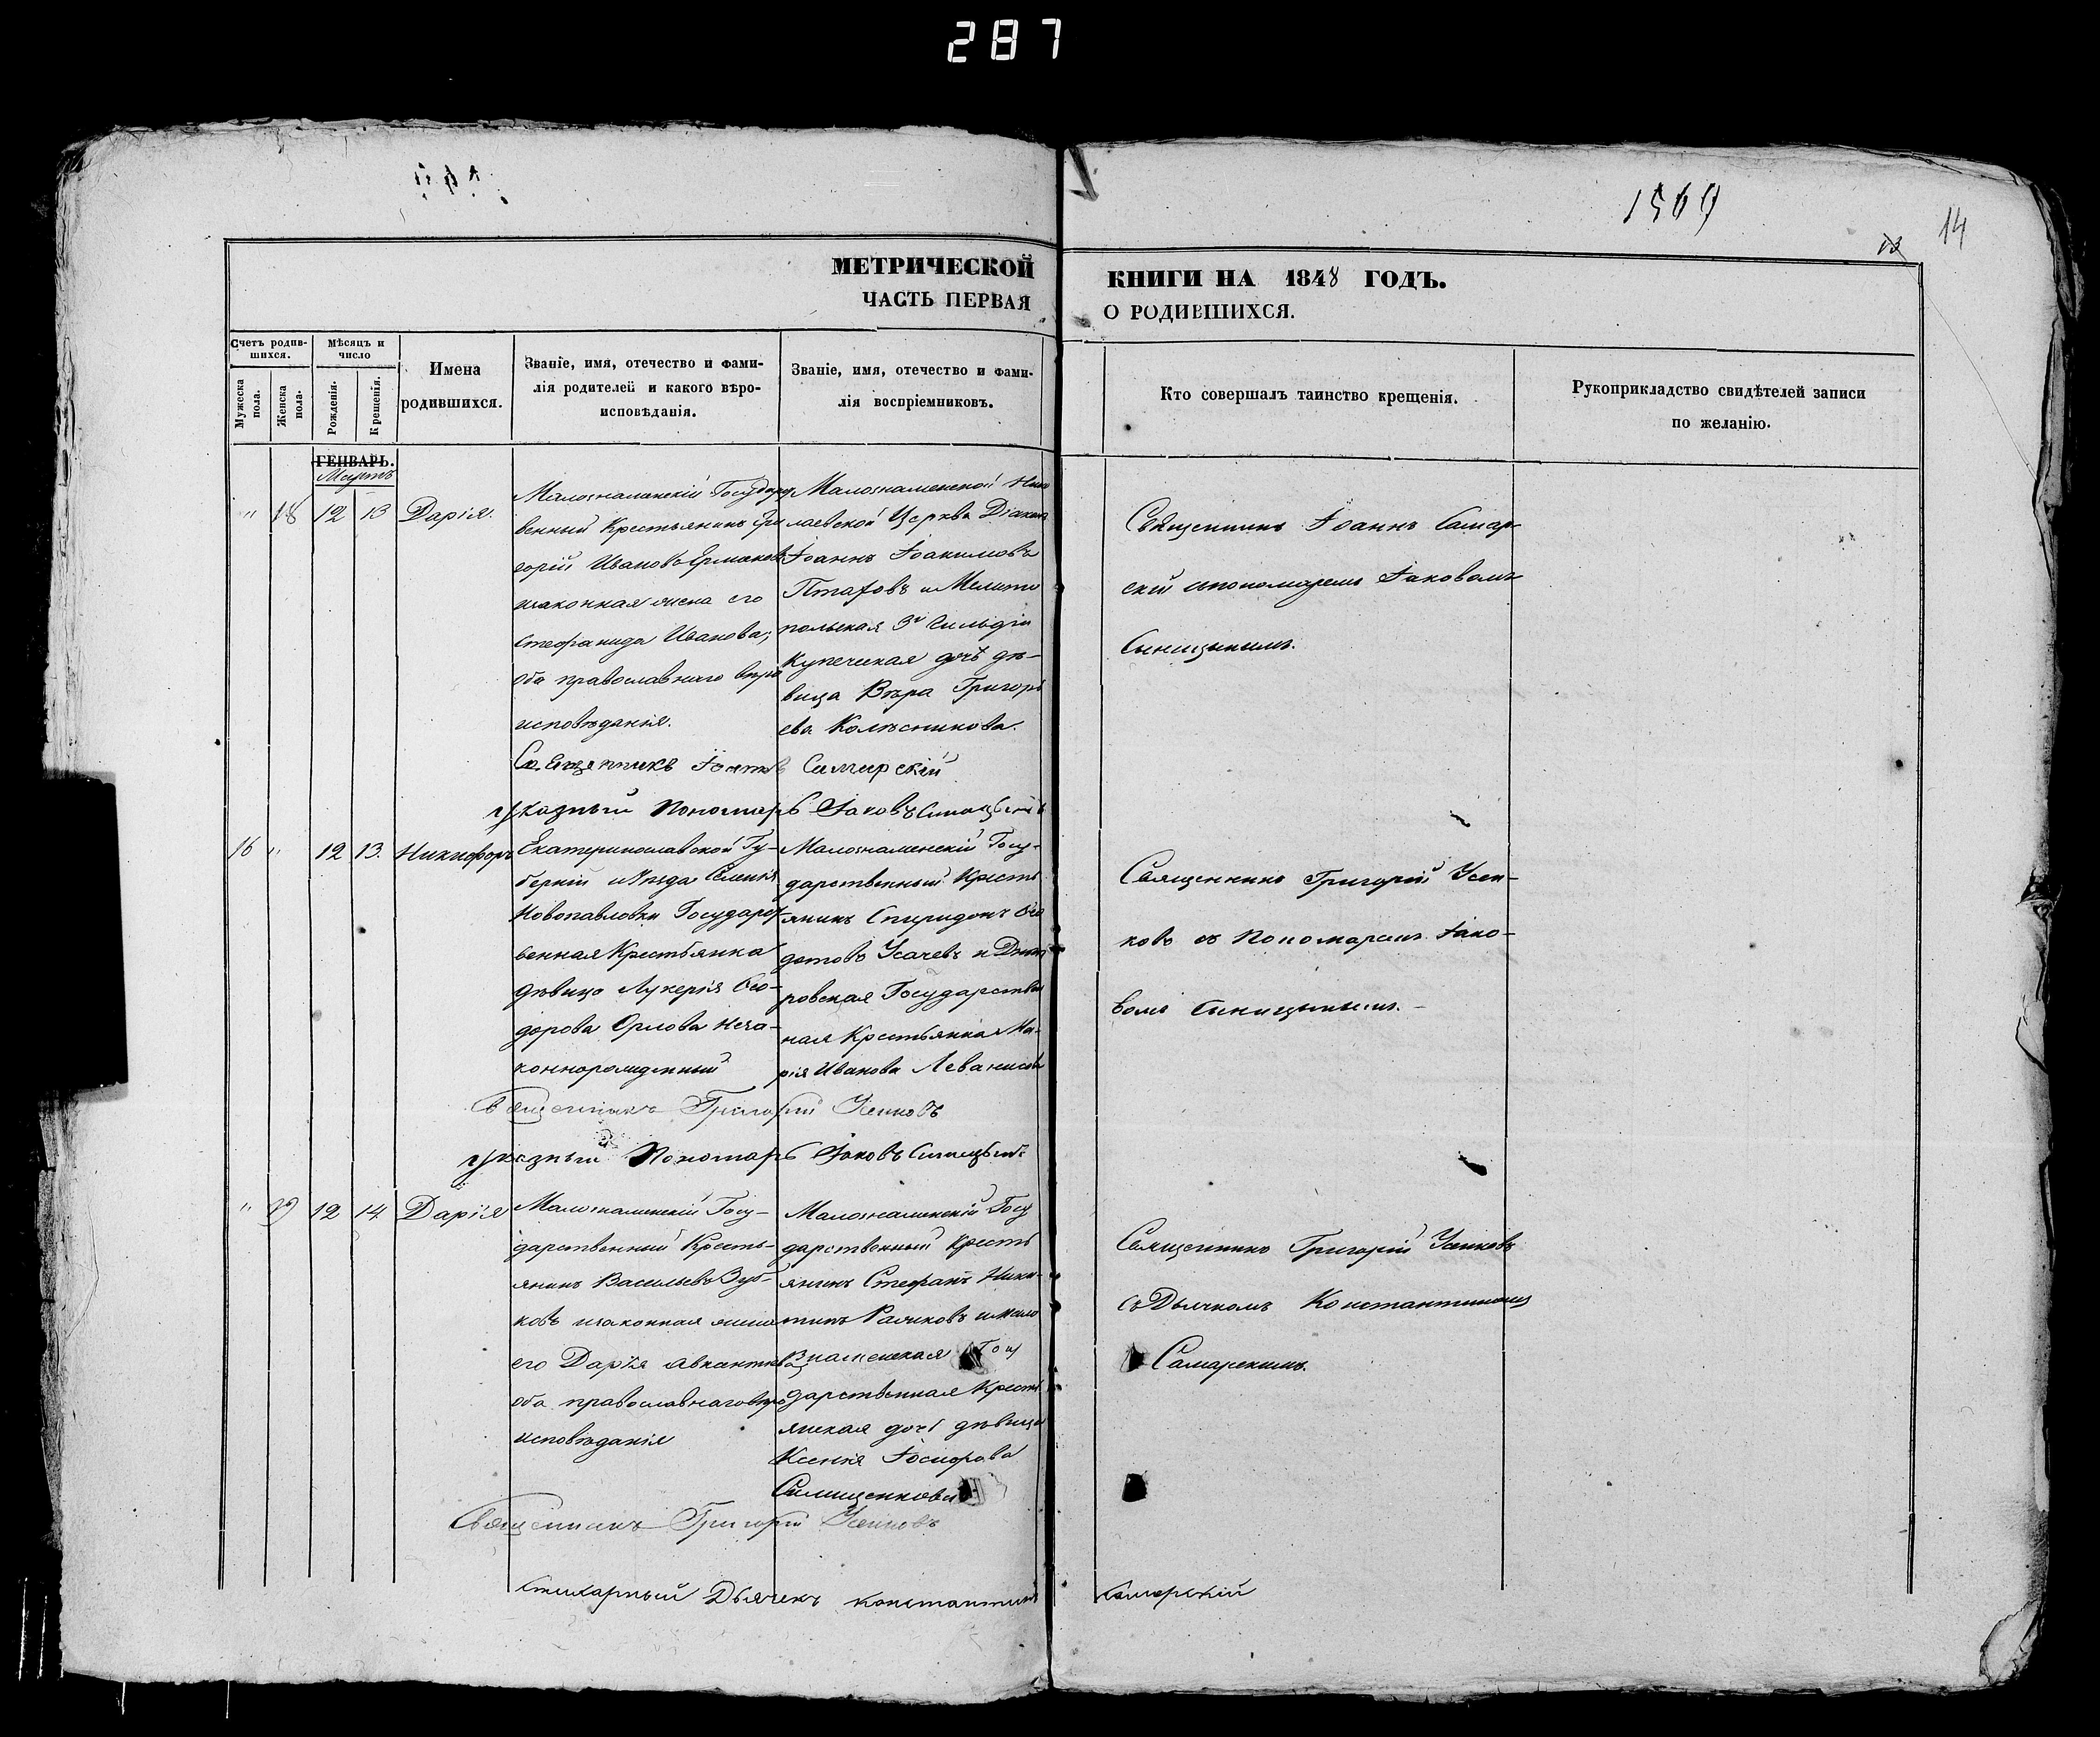 287
1569
13
14
МЕТРИЧЕСКОЙ
ЧАСТЬ ПЕРВАЯ
КНИГИ НА 1848 ГОДЪ.
О РОДИВШИХСЯ.
Счетъ родив-
шихся.
Мужеска
пола.
Женска
пола.
Мѣсяцъ и
число
Рожденія.
Крещенія.
Имена
родившихся.
Званіе, имя, отечество и фами-
лія родителей и какого вѣро-
исповѣданія.
Званіе, имя, отечество и фами-
лія воспріемниковъ.
Кто совершалъ таинство крещенія.
Рукоприкладство свидѣтелей записи
по желанію.
ГЕНВАРЬ.
Мартъ
" 18 12 13 Дарія.
Малознаменскій Государст
венный Крестьянинъ Гри
горій Ивановъ Ермаковъ
изаконная жена его
Стефанида Иванова;
оба православнаго веро
исповѣданія.
Малознаменской Нико
лаевской Церкви Діаконъ
Іоаннъ Іоакимовъ
Птаховъ и Мелито
польская 3й Гильдіи
Купеческая дочь дѣ-
вица Вѣра Григорь
ева Колѣсникова.
Священникъ Іоаннъ Самар
скій ипономаремъ Іаковомъ
Синицынымъ.
Священникъ Іоаннъ Самарскій
указный Пономарь Іаковъ Синицынъ
16 " 12 13. Никифоръ
Екатеринославской Гу-
берніи иУезда Селенія
Новопавловки Государст
венная Крестьянка
дѣвица Лукерія Ѳео-
дорова Орлова неза-
коннорожденный
Малознаменскій Госу-
дарственный Кресть
янинъ Спиридонъ Ѳео
дотовъ Усачевъ и Днѣп
ровская Государствен
ная Крестьянка Ма-
рія Иванова
Священникъ Григорій Усен-
ковъ съ Пономаремъ Іако-
вомъ Синицынымъ.-
Священникъ Григорій Усенковъ
указный Пономарь Іаковъ Синицынъ
" 12 14 Дарія
Малознаменскій Госу-
дарственный Кресть-
янинъ Васильевъ Зуб-
ковъ изаконная жена
его Дарія
оба православнаговеро
исповѣданія
Малознаменскій Госу
дарственный Кресть
янинъ Стефанъ Ники-
тинъ имало
Знаменская Госу
дарственная Кресть
янская дочь дѣвица
Ксенія Іосифова
Священникъ Григорій Усенковъ
съДьячкомъ Константиномъ
Самарскимъ.
Священникъ Григорій Усенковъ
Стихарный Дьячекъ Константинъ Самарскій